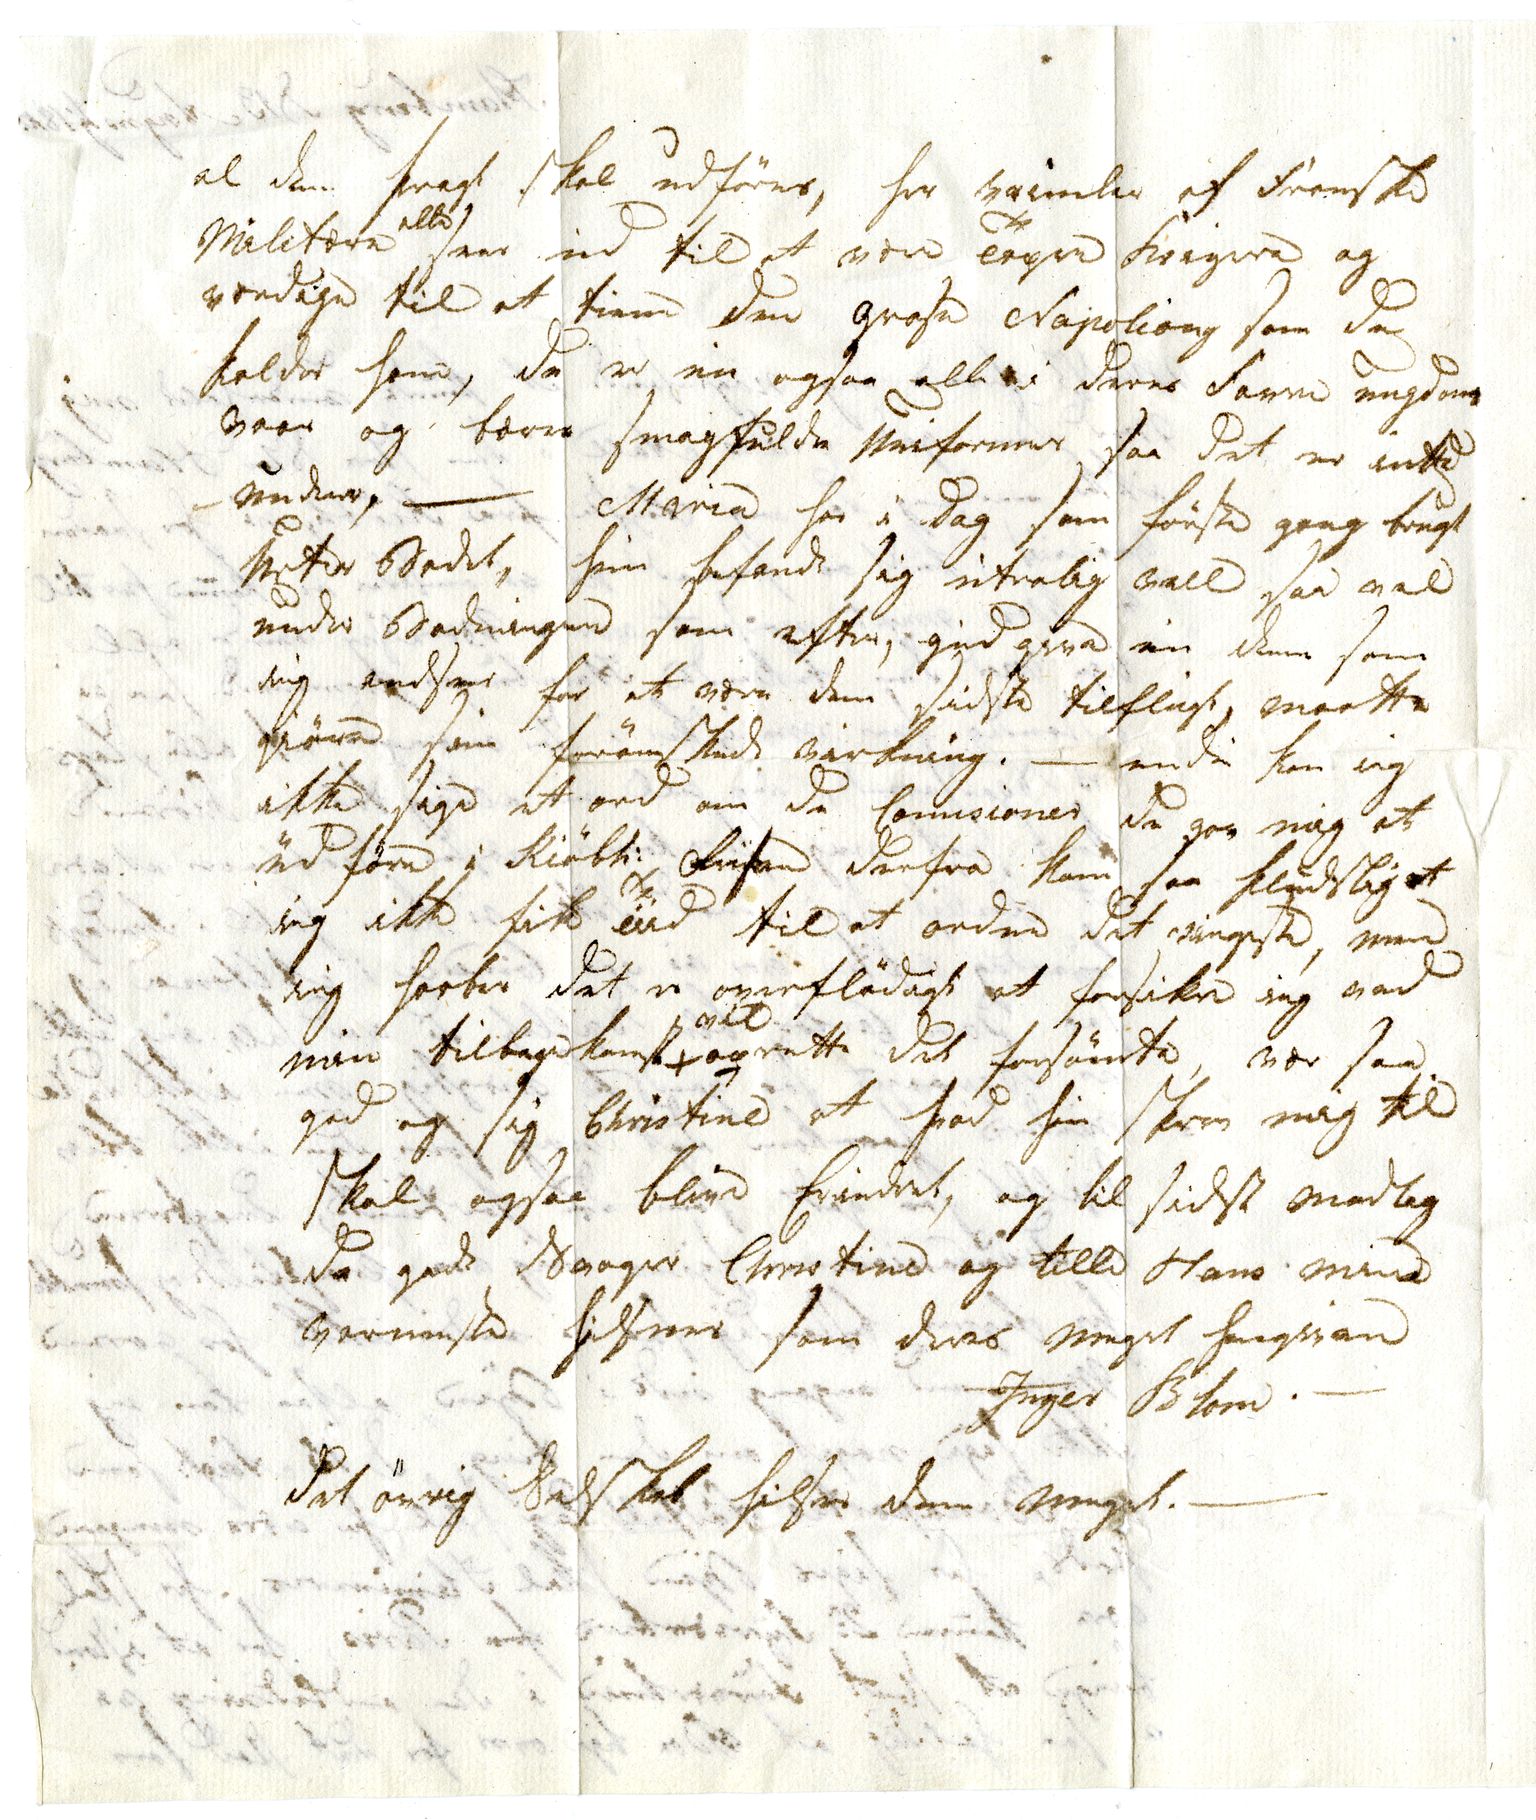 al den pragt skal udföres, her vrimler af Franske
Militære alle seer ud til at være Tapre Krigere og
værdige til at tiene den grose Napoliong som de
kalder ham, de er iu ogsaa alle i deres Favre ungdoms
vaar og bærer smagfulde Uniformer saa det er intte
under, — Maria har i Dag som förste gang brugt
Badet, hun befandt sig utrolig vell saa vel
under Badningen som efter, gud give iu den som
ieg andseer for at være den sidste tilflugt, maatte
giöre sin forönskede virkning. — endu kan ieg
ikke sige et ord om de Comisioner de gav mig at
udföre i Kiöbh: Reisen derfra kom saa pludslig at
ieg ikke fik Tiid til at ordne det ringeste, men
ieg haaber det er overflödigt at forsikre ieg ved
min tilbagekomst vil oprette det forsömte, vær saa
god og sig Christine at hvad hun skrev mig til
skal ogsaa blive Erindret, og til sidst modtag
de gode Svoger Christine og lille Hans mine
varmeste hilsener som deres meget hengivne
Inger Blom. —
det övrig Selskab hilser dem meget. —